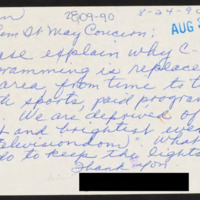 2809-90
8-24-90
AUG
om It May Concern:
ase explain why C-
ramming is replace
area from time to t
th sports, paid program
. We are deprived of
t and brightest eve
elevisiondom". What
do to keep the lights
Thank you.